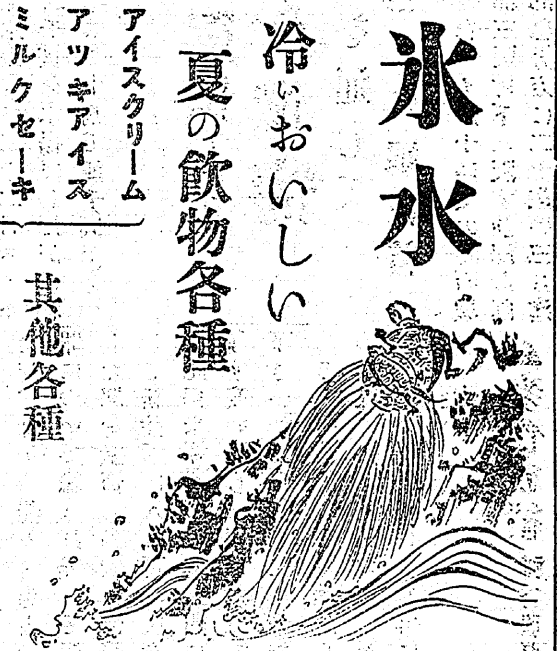 氷水
冷いおいしい
夏の飲物各種
アイスクリーム
アツキアイス
ミルクセーキ
其他各種